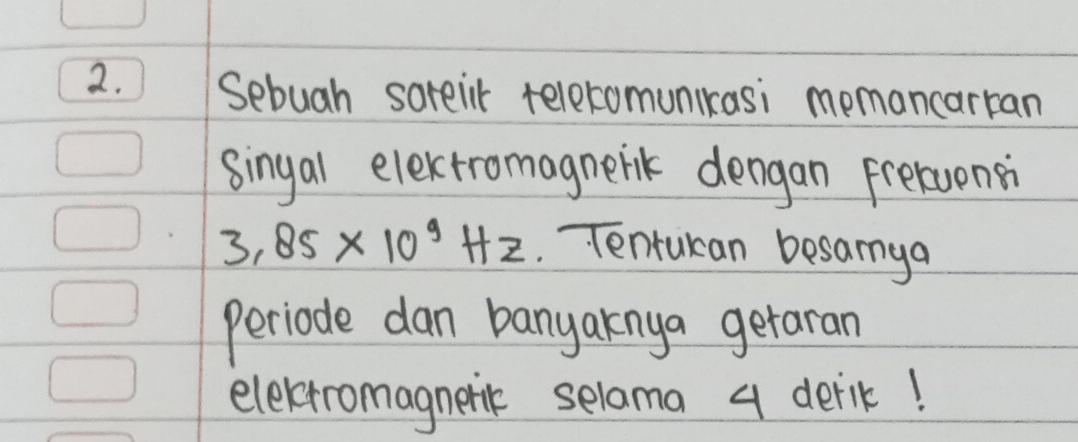 2. Sebuah satelit telekomunikasi memancarkan
sinyal elektromagnetik dengan frekuensi
3,85 × 10⁹ Hz. Tentukan besarnya
periode dan banyaknya getaran
elektromagnetik selama 4 detik !